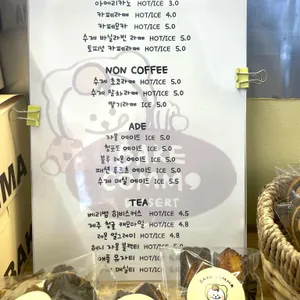 아메리카노 HOT/ICE 3.0
카페라떼 HOT/ICE 4.0
카페모카 HOT/ICE 5.0
수제 바닐라빈 라떼 HOT/ICE 5.0
토피넛 카페라떼 HOT/ICE 5.0
NON COFFEE
수제 초코라떼 HOT/ICE 5.0
수제 말차라떼 HOT/ICE 5.0
딸기라떼 ICE 5.0
ADE
자몽 에이드 ICE 5.0
청포도 에이드 ICE 5.0
블루 레몬 에이드 ICE 5.0
패션 후르츠 에이드 ICE 5.0
수제 과일 에이드 ICE 5.5
DESSERT
TEA
베리썸 히비스커스 HOT/ICE 4.5
제주 청귤 캐모마일 HOT/ICE 4.8
레몬 얼그레이 HOT/ICE 4.8
허니 자몽 블랙티 HOT/ICE 5.0
애플 유자티 HOT/ICE 5.0
매실티 HOT/ICE 5.0